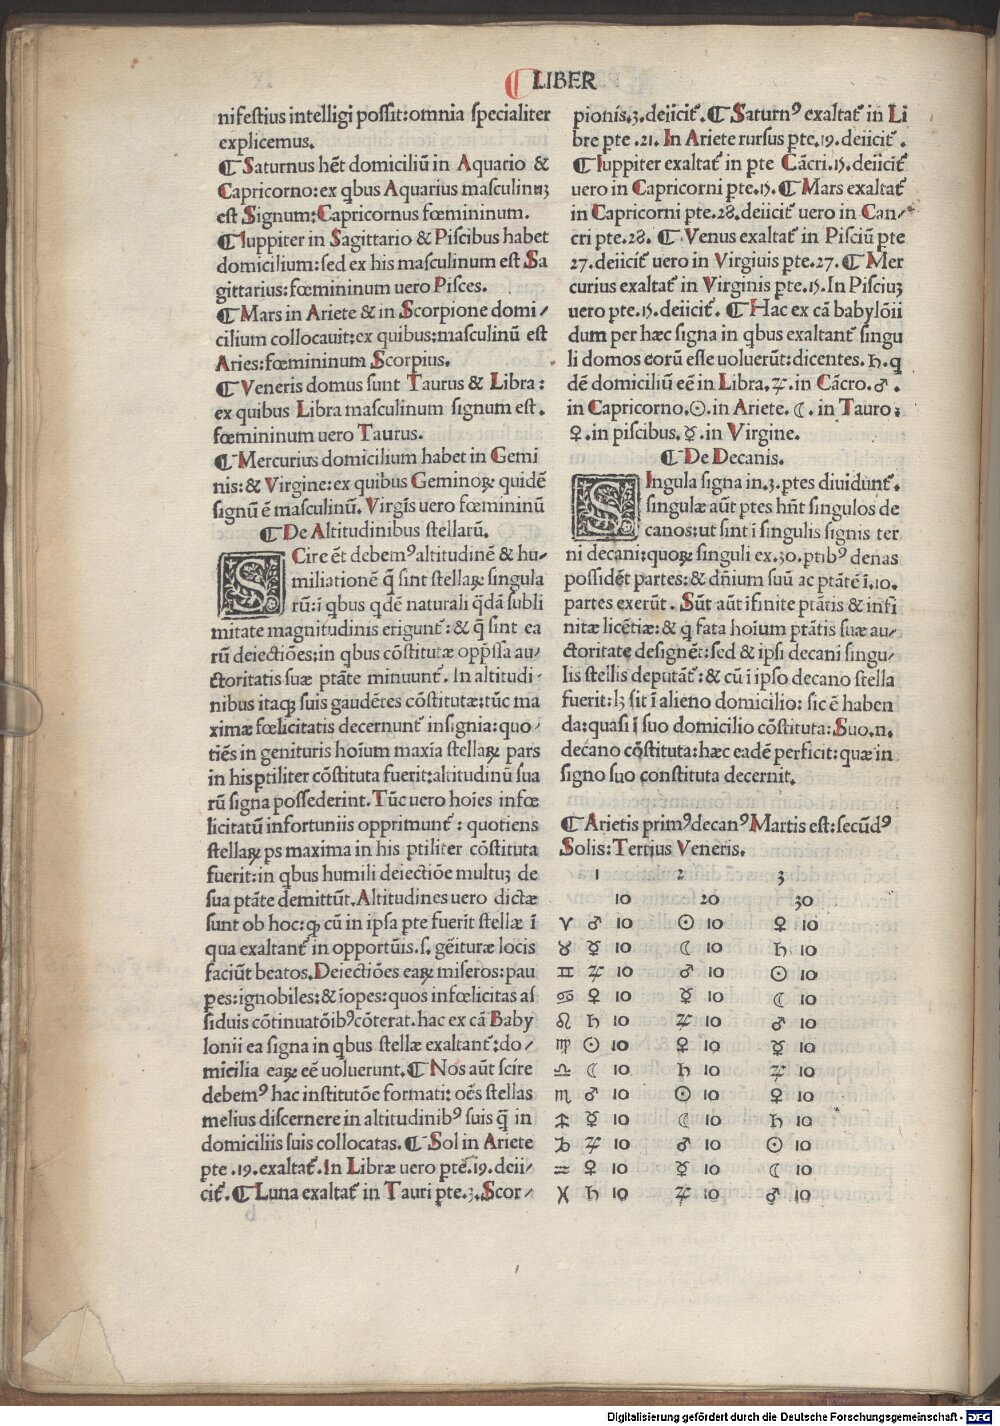 ¶ LIBER
nifestius intelligi possit:omnia specialiter
explicemus.
¶ Saturnus hẽt domiciliũ in Aquario &
Capricorno:ex qbus Aquarius masculinuꝫ
est Signum:Capricornus fœmininum.
¶ Iuppiter in Sagittario & Piscibus habet
domicilium:sed ex his masculinum est Sa
gittarius:fœmininum uero Pisces.
¶ Mars in Ariete & in Scorpione domi⸗
cilium collocauit:ex quibus:masculinũ est
Aries:fœmininum Scorpius.
¶ Veneris domus sunt Taurus & Libra:
ex quibus Libra masculinum signum est.
fœmininum uero Taurus.
¶ Mercurius domicilium habet in Gemi
nis:& Virgine:ex quibus Geminoꝝ quidẽ
signũ ẽ masculinũ. Virgĩs uero fœmininũ
¶ De Altitudinibus stellarũ.
SCire ẽt debemꝰ altitudinẽ & hu⸗
miliationẽ q̃ sint stellaꝝ singula
rũ:ĩ qbus qdẽ naturali q̃dã subli
mitate magnitudinis erigunt᷑:& q̃ sint ea
rũ deiectiões:in qbus cõstitutæ opp̃ssa au⸗
ctoritatis suæ ptãte minuunt᷑. In altitudi⸗
nibus itaqꝫ suis gaudẽtes cõstitutæ:tũc ma
ximæ fœlicitatis decernunt᷑ insignia:quo⸗
tiẽs in genituris hoĩum maxĩa stellaꝝ pars
in his ꝑtiliter cõstituta fuerit:altitudinũ sua
rũ signa possederint. Tũc uero hoĩes infœ
licitatũ infortuniis opprimunt᷑: quotiens
stellaꝝ ps maxima in his ꝑtiliter cõstituta
fuerit:in qbus humili deiectiõe multuꝫ de
sua ptãte demittũt. Altitudines uero dictæ
sunt ob hoc: qꝫ cũ in ipsa pte fuerit stellæ ĩ
qua exaltant᷑ in opportũis.s. gẽituræ locis
faciũt beatos. Deiectiões eaꝝ miseros:pau
ꝑes:ignobiles:& ĩopes:quos infœlicitas as
siduis cõtinuatõibꝰ cõterat. hac ex cã Baby
lonii ea signa in qbus stellæ exaltant᷑:do⸗
micilia eaꝝ eẽ uoluerunt. ¶ Nos aũt scire
debemꝰ hac institutõe formati: oẽs stellas
melius discernere in altitudinibꝰ suis q̃ in
domiciliis suis collocatas. ¶ Sol in Ariete
pte .19. exaltat᷑. In Libræ uero pte.19. deii⸗
cit᷑. ¶ Luna exaltat᷑ in Tauri pte.3. Scor⸗
pionis.3. deiicit᷑. ¶ Saturnꝰ exaltat᷑ in Li
bre pte .21. In Ariete rursus pte.19. deiicit᷑.
¶ Iuppiter exaltat᷑ in pte Cãcri.15. deiicit᷑
uero in Capricorni pte.15. ¶ Mars exaltat᷑
in Capricorni pte.28. deiicit᷑ uero in Can⸗
cri pte.28. ¶ Venus exaltat᷑ in Pisciũ pte
27. deiicit᷑ uero in Virgiuis pte.27. ¶ Mer
curius exaltat᷑ in Virginis pte.15. In Pisciuꝫ
uero pte.15. deiicit᷑. ¶ Hac ex cã babylõii
dum per hæc signa in qbus exaltant᷑ singu
li domos eorũ esse uoluerũt:dicentes. ♄. q
dẽ domiciliũ eẽ in Libra. ♃. in Cãcro. ♂.
in Capricorno. ☉. in Ariete. ☾. in Tauro:
♀. in piscibus. ☿. in Virgine.
¶ De Decanis.
SIngula signa in.3. ptes diuidunt᷑.
singulæ aũt ptes hñt singulos de
canos:ut sint ĩ singulis signis ter
ni decani:quoꝝ singuli ex.30. ptibꝰ denas
possidẽt partes:& dñium suũ ac ptãtẽ ĩ.10.
partes exerũt. Sũt aũt ĩfinite ptãtis & infi
nitæ licẽtiæ:& q fata hoĩum ptãtis suæ au⸗
ctoritate designẽt:sed & ipsi decani singu⸗
lis stellis deputãt᷑:& cũ ĩ ipso decano stella
fuerit:lꝫ sit ĩ alieno domicilio: sic ẽ haben
da:quasi ĩ suo domicilio cõstituta:Suo.n.
decano cõstituta:hæc eadẽ perficit:quæ in
signo suo constituta decernit.
¶ Arietis primꝰ decanꝰ Martis est:secũdꝰ
Solis:Tertius Veneris.
1 2 3
10 20 30
♈ ♂ 10 ☉ 10 ♀ 10
♉ ☿ 10 ☾ 10 ♄ 10
♊ ♃ 10 ♂ 10 ☉ 10
♋ ♀ 10 ☿ 10 ☾ 10
♌ ♄ 10 ♃ 10 ♂ 10
♍ ☉ 10 ♀ 10 ☿ 10
♎ ☾ 10 ♄ 10 ♃ 10
♏ ♂ 10 ☉ 10 ♀ 10
♐ ☿ 10 ☾ 10 ♄ 10
♑ ♃ 10 ♂ 10 ☉ 10
♒ ♀ 10 ☿ 10 ☾ 10
♓ ♄ 10 ♃ 10 ♂ 10
Digitalisierung gefördert durch die Deutsche Forschungsgemeinschaft - DFG